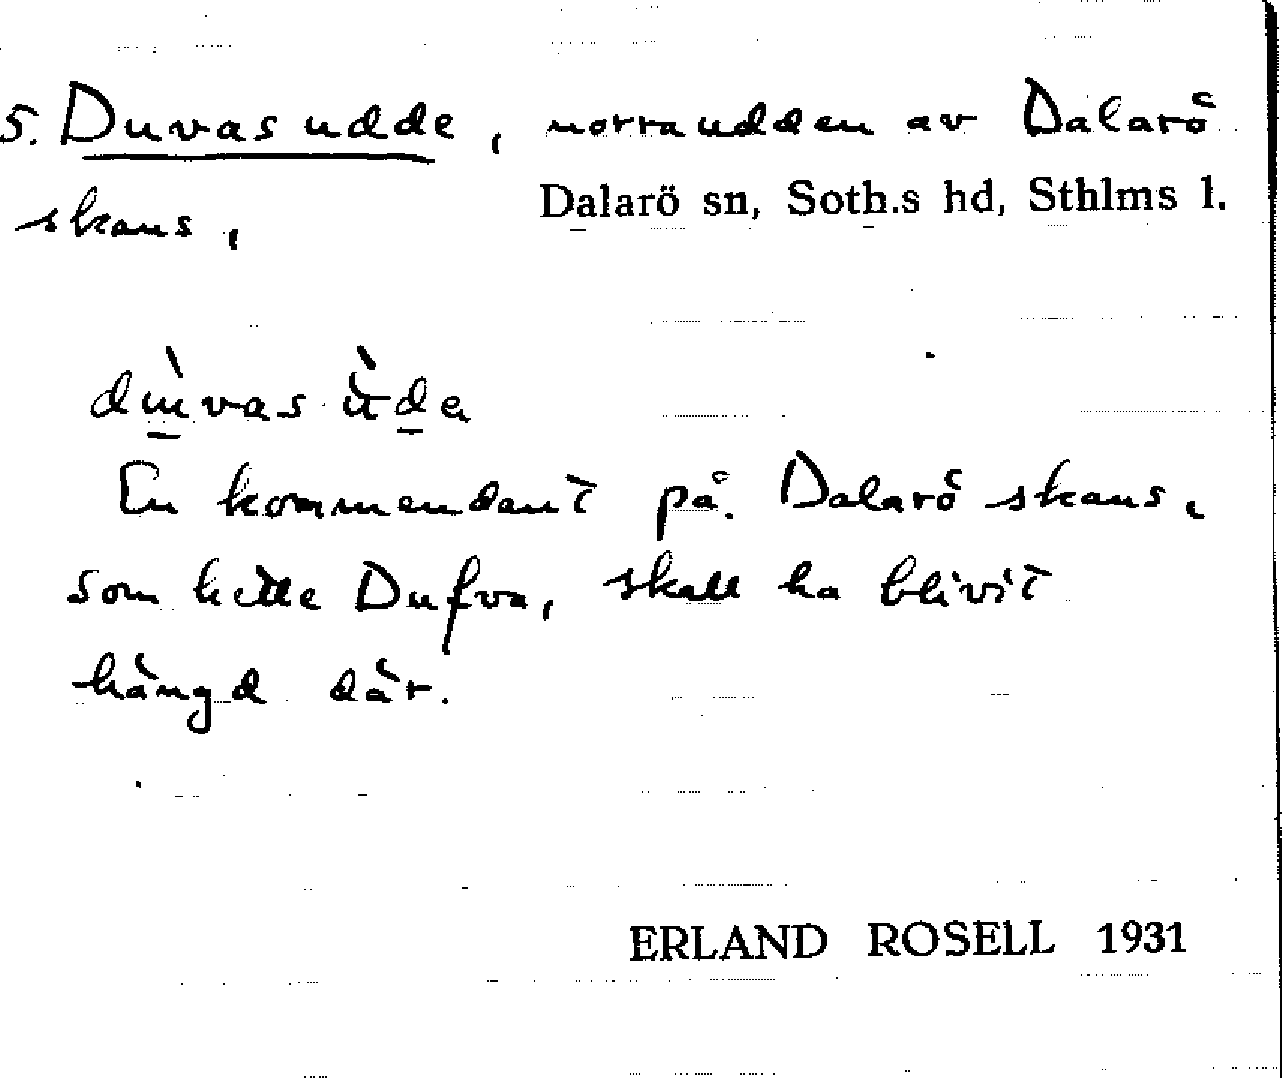 5. Duvas udde, norra udden av Dalarö
skans,
Dalarö sn, Soth.s hd, Sthlms l.
dùvas ùde
En kommendant på Dalarö skans,
som hette Dufva, skall ha blivit
hängd där.
ERLAND ROSELL 1931